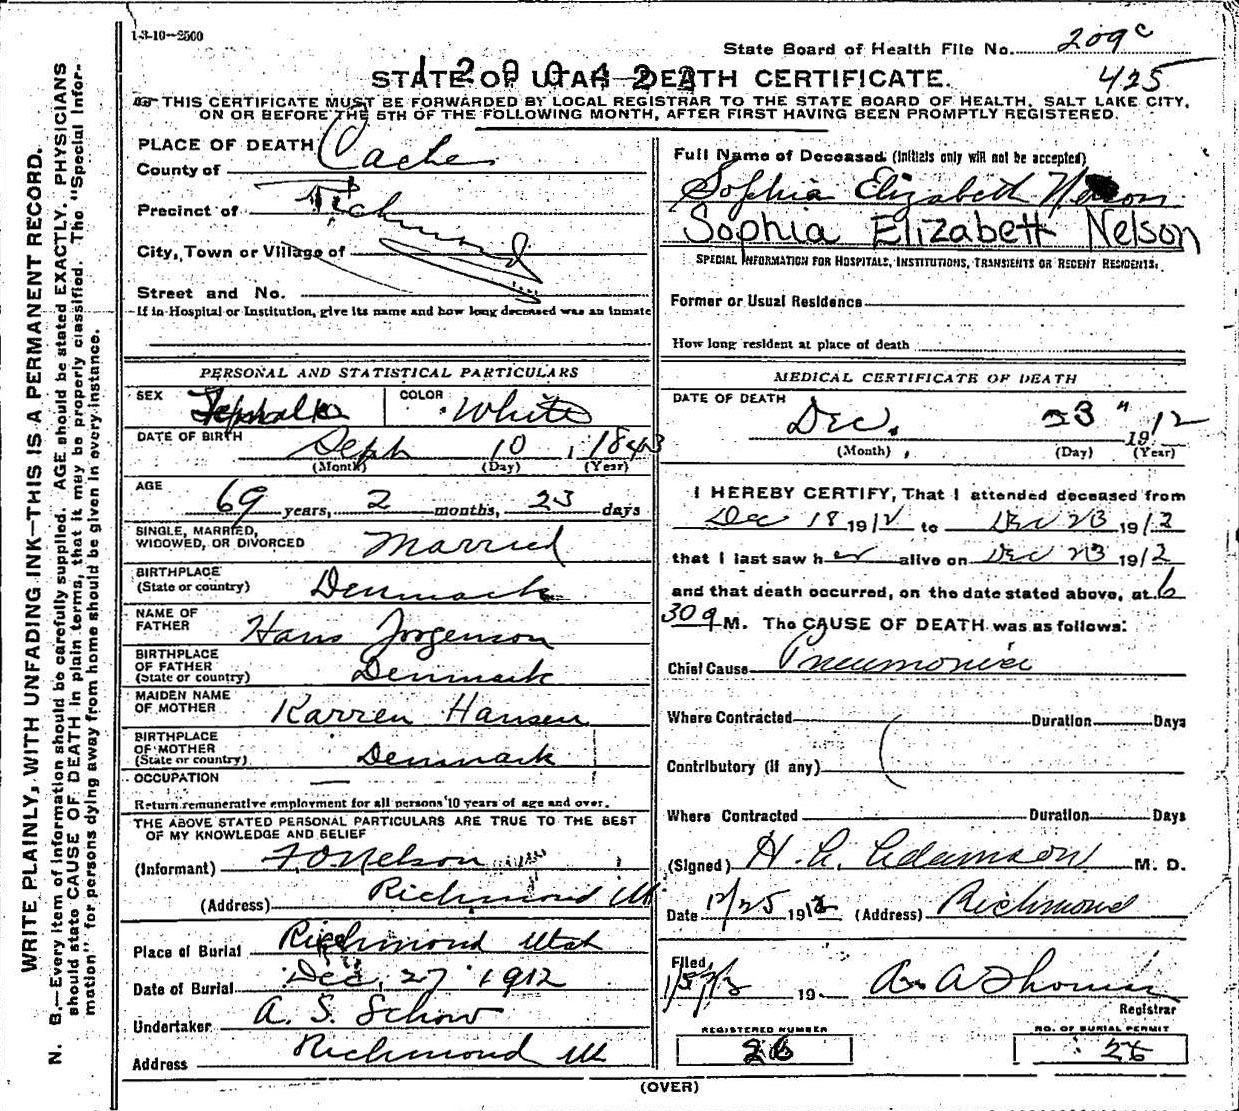 1-3-10-2500
State Board of Health File No. 209c
STATE OF UTAH-DEATH CERTIFICATE.
425
THIS CERTIFICATE MUST BE FORWARDED BY LOCAL REGISTRAR TO THE STATE BOARD OF HEALTH, SALT LAKE CITY,
ON OR BEFORE THE 5TH OF THE FOLLOWING MONTH, AFTER FIRST HAVING BEEN PROMPTLY REGISTERED.
WRITE PLAINLY, WITH UNFADING INK—THIS IS A PERMANENT RECORD.
N. B.—Every item of information should be carefully supplied. AGE should be stated EXACTLY. PHYSICIANS
should state CAUSE OF DEATH in plain terms, that it may be properly classified. The "Special Infor-
mation" for persons dying away from home should be given in every instance.
PLACE OF DEATH
County of Cache
Precinct of Richmond
City, Town or Village of
Street and No.
If in Hospital or Institution, give its name and how long deceased was an inmate
PERSONAL AND STATISTICAL PARTICULARS
SEX
COLOR White
DATE OF BIRTH Sept 10, 1843
(Month) (Day) (Year)
AGE
69 years, 2 months, 23 days
SINGLE, MARRIED,
WIDOWED, OR DIVORCED Married
BIRTHPLACE
(State or country) Denmark
NAME OF
FATHER Hans Jorgenson
BIRTHPLACE
OF FATHER
(State or country) Denmark
MAIDEN NAME
OF MOTHER Karren Hansen
BIRTHPLACE
OF MOTHER
(State or country) Denmark
OCCUPATION —
Return remunerative employment for all persons 10 years of age and over.
THE ABOVE STATED PERSONAL PARTICULARS ARE TRUE TO THE BEST
OF MY KNOWLEDGE AND BELIEF
(Informant) Nelson
(Address) Richmond Ut
Place of Burial Richmond Utah
Date of Burial Dec. 27 1912
Undertaker A. S. Schow
Address Richmond Ut
Full Name of Deceased (Initials only will not be accepted)
Sophia Elizabeth Nelson
Sophia Elizabett Nelson
SPECIAL INFORMATION FOR HOSPITALS, INSTITUTIONS, TRANSIENTS OR RECENT RESIDENTS.
Former or Usual Residence
How long resident at place of death
MEDICAL CERTIFICATE OF DEATH
DATE OF DEATH
Dec. 23" 1912
(Month) (Day) (Year)
I HEREBY CERTIFY, That I attended deceased from
Dec 18 1912 to Dec 23 1912
that I last saw her alive on Dec 23 1912
and that death occurred, on the date stated above, at 6
30 a M. The CAUSE OF DEATH was as follows:
Chief Cause Pneumonia
Where Contracted Duration Days
Contributory (if any)
Where Contracted Duration Days
(Signed) H. C. Adamson M. D.
Date 12/25 1912 (Address) Richmond
Filed
19 Registrar
REGISTERED NUMBER
26
NO. OF BURIAL PERMIT
26
(OVER)